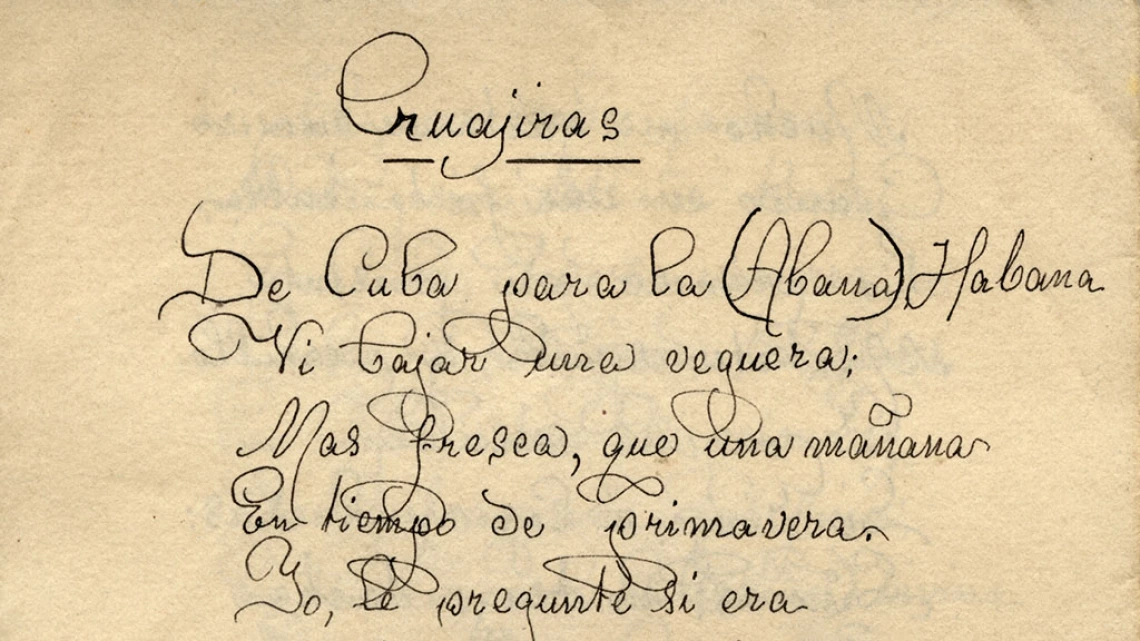 Guajiras
De Cuba para la (Abana) Habana
Vi bajar una veguera;
Mas fresca, que una mañana
En tiempo de primavera.
Yo, le pregunte si era